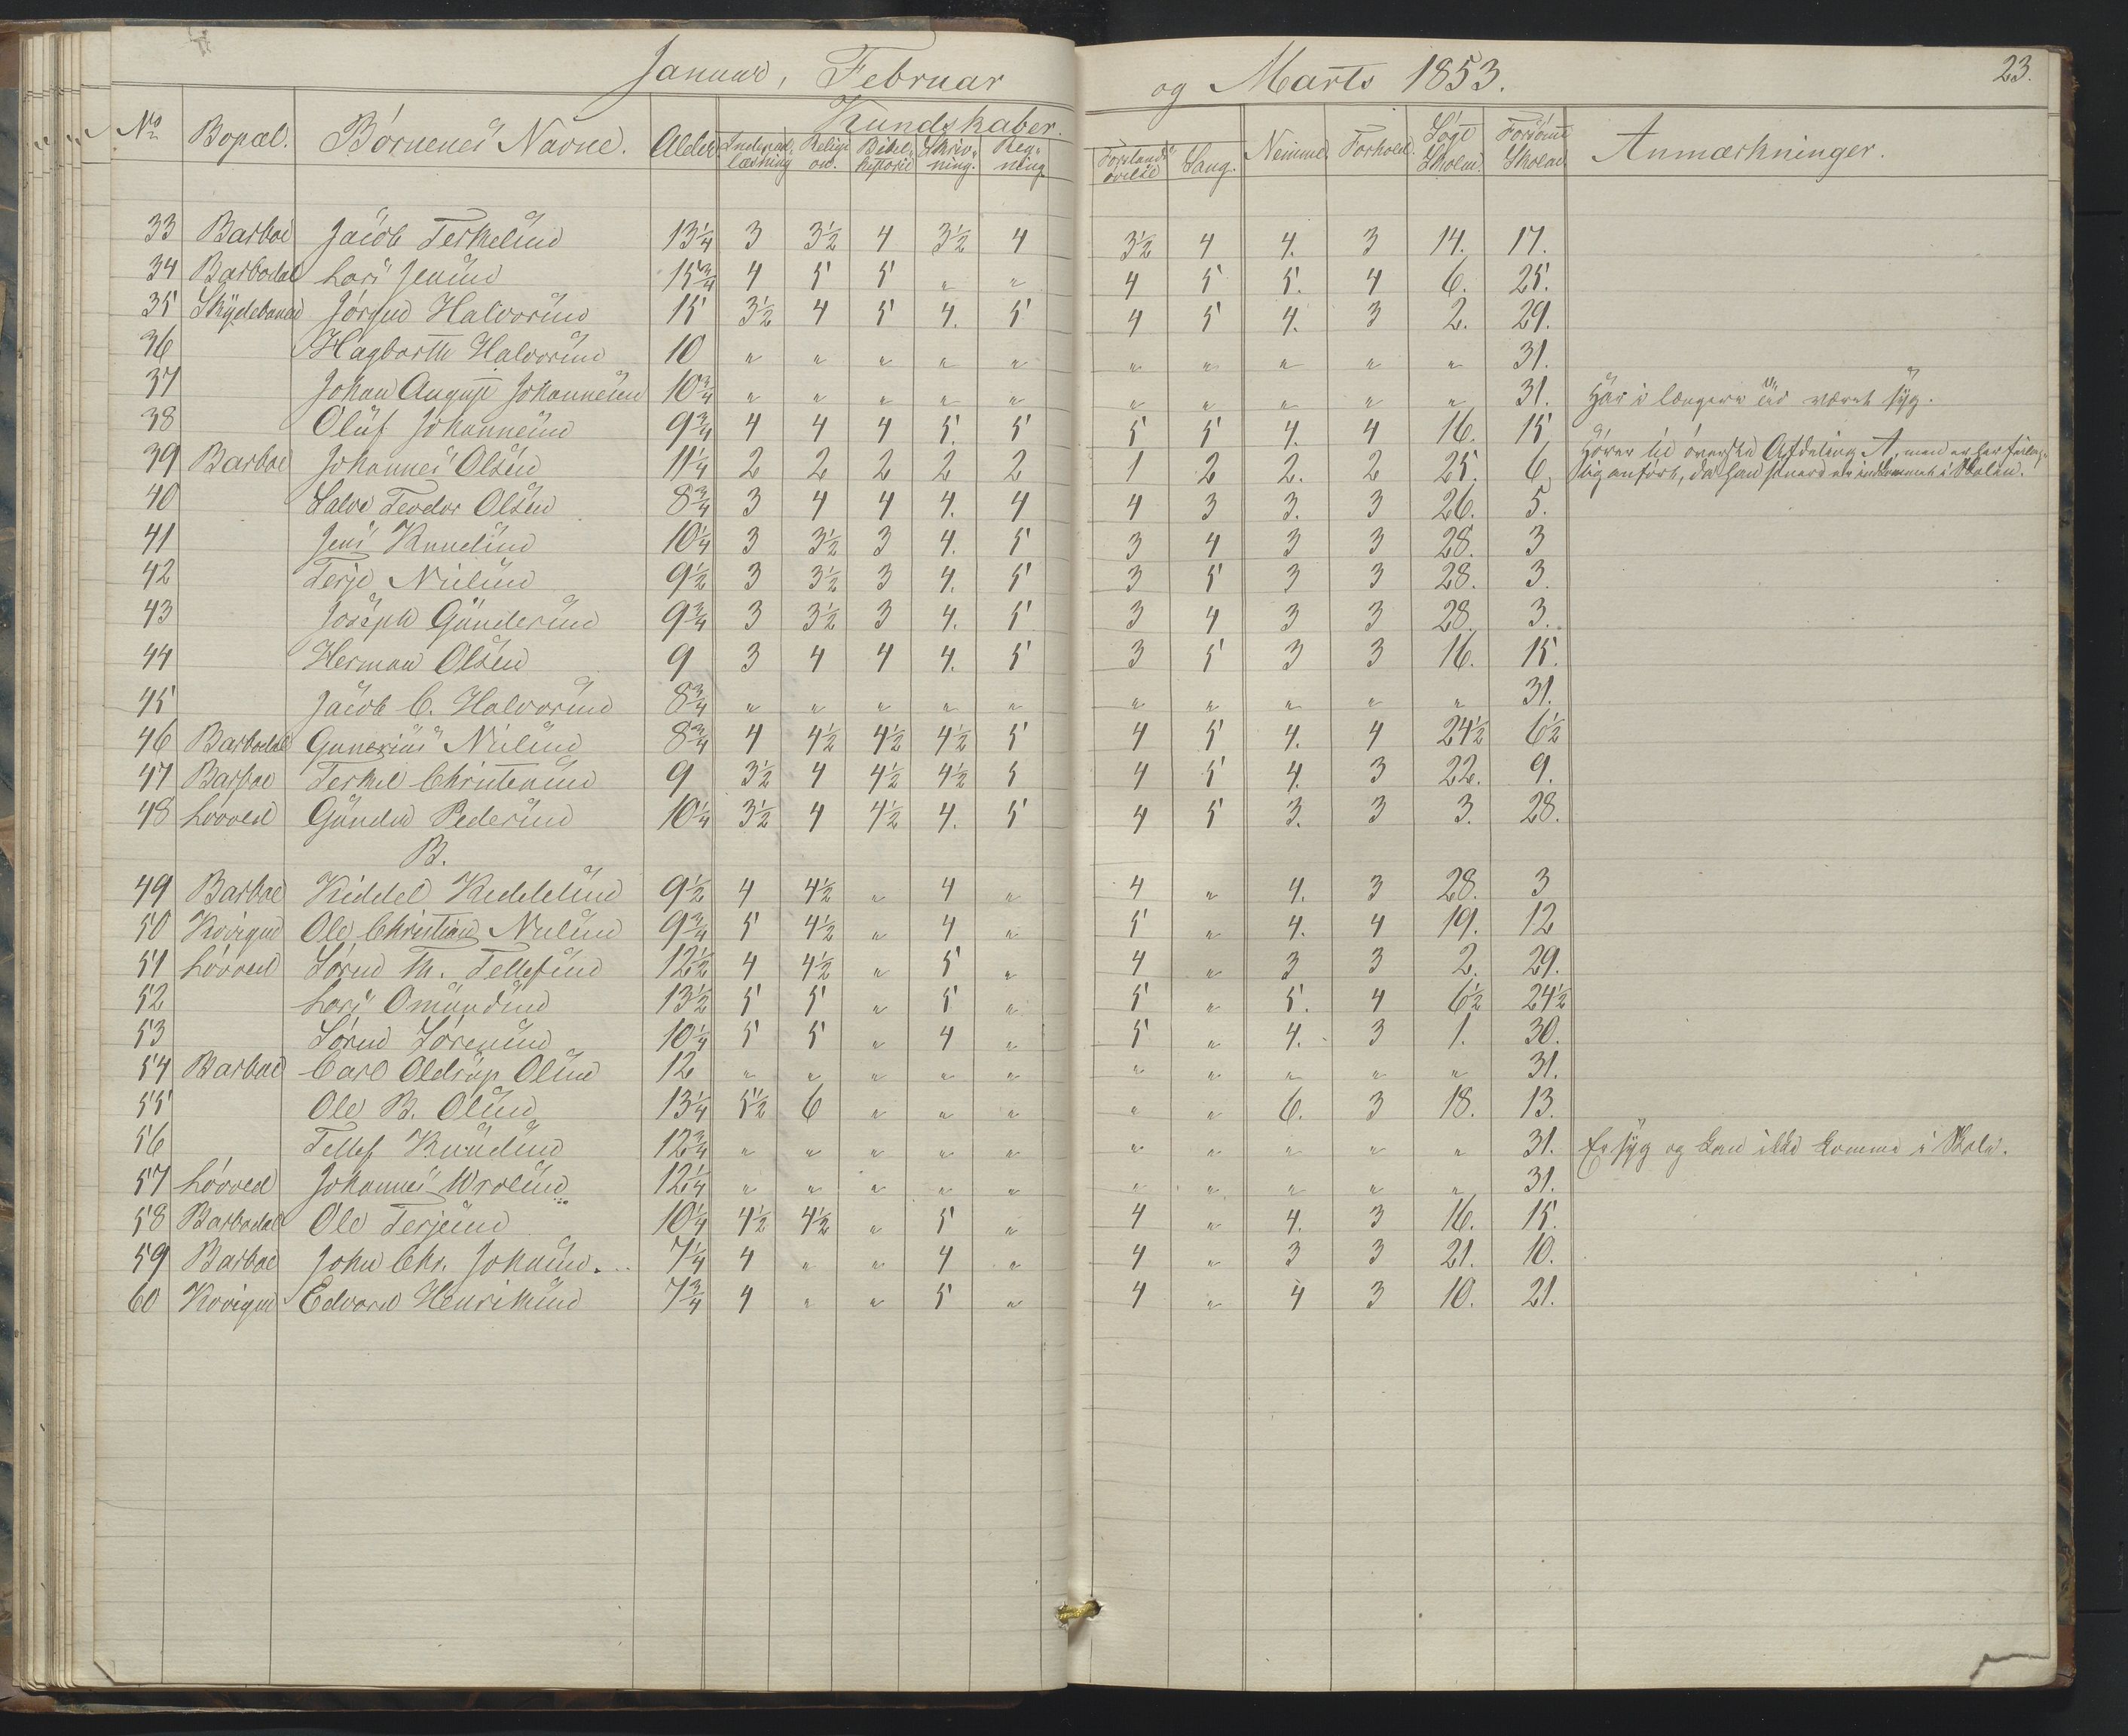 Januar, Februar og Marts 1853. 23.
No Bopæl. Børnenes Navne. Alder. Kundskaber. Nemme. Forhold. Søgt Skolen. Forsømt Skolen. Anmærkninger.
Indenadlæsning Religion. Bibelhistorie Skrivning. Regning Forstandsøvelse Sang.
33 Barboe Jacob Terkelsen 13¼ 3 3½ 4 3½ 4 3½ 4 4. 3 14. 17.
34 Barbodal Lars Jensen 15¾ 4 5 5 " " 4 5 5. 4 6. 25.
35 Skydebanen Jørgen Halvorsen 15 3½ 4 5 4. 5 4 5 4. 3 2. 29.
36 Hagbarth Halvorsen 10 " " " " " " " " " " 31.
37 Johan August Johannesen 10¾ " " " " " " " " " " 31. Har i længere Tid været syg.
38 Oluf Johannesen 9¾ 4 4 4 5. 5 5 5 4. 4 16. 15
39 Barboe Johannes Olsen 11¼ 2 2 2 2 2 1 2 2. 2 25. 6 Hører til øverste Afdeling A, men er her
anført, da han senere er indkommet i Skolen.
40 Salve Teodor Olsen 8¾ 3 4 4 4. 4 4 3 3. 3 26. 5.
41 Jens Knudsen 10¼ 3 3½ 3 4. 5 3 4 3 3 28. 3
42 Terje Nielsen 9½ 3 3½ 3 4. 5 3 5 3 3 28. 3.
43 Joseph Gundersen 9¾ 3 3½ 3 4. 5 3 4 3 3 28. 3.
44 Herman Olsen 9 3 4 4 4. 5 3 5 3 3 16. 15.
45 Jacob C. Halvorsen 8¾ " " " " " " " " " " 31.
46 Barbodal Gunerius Nielsen 8¾ 4 4½ 4½ 4½ 5 4 5 4. 4 24½ 6½
47 Barboe Terkel Christensen 9 3½ 4 4½ 4½ 5 4 5 4. 3 22. 9.
48 Løvold Gunder Pedersen 10¼ 3½ 4 4½ 4. 5 4 5 3. 3 3. 28.
B.
49 Barboe Kiddel Kiddelsen 9½ 4 4½ " 4 " 4 " 4. 3 28. 3
50 Kvigen Ole Christian Nielsen 9¾ 5 4½ " 4 " 5 " 4. 4 19. 12
51 Løvold Søren Th. Tellefsen 12½ 4 4½ " 5 " 4 " 3 3 2. 29.
52 Lars Omundsen 13½ 5 5 " 5 " 5 " 5. 4 6½ 24½
53 Søren Sørensen 10¼ 5 5 " 4 " 5 " 4. 3 1. 30.
54 Barboe Carl Oldrup Olsen 12 " " " " " " " " " " 31.
55 Ole B. Olsen 13¼ 5½ 6 " " " " " 6. 3 18. 13.
56 Tellef Knudsen 12¾ " " " " " " " " " " 31. Er syg og kan ikke komme i Skole.
57 Løvold Johannes Wrolsen 12¼ " " " " " " " " " " 31.
58 Barbodal Ole Terjesen 10¼ 4½ 4½ " 5 " 4 " 4. 3 16. 15.
59 Barboe John Chr. Johnsen. 7¼ 4 " " 4 " 4 " 3 3 21. 10.
60 Kvigen Edvard Henriksen 7¾ 4 " " 5 " 4 " 4 3 10. 21.